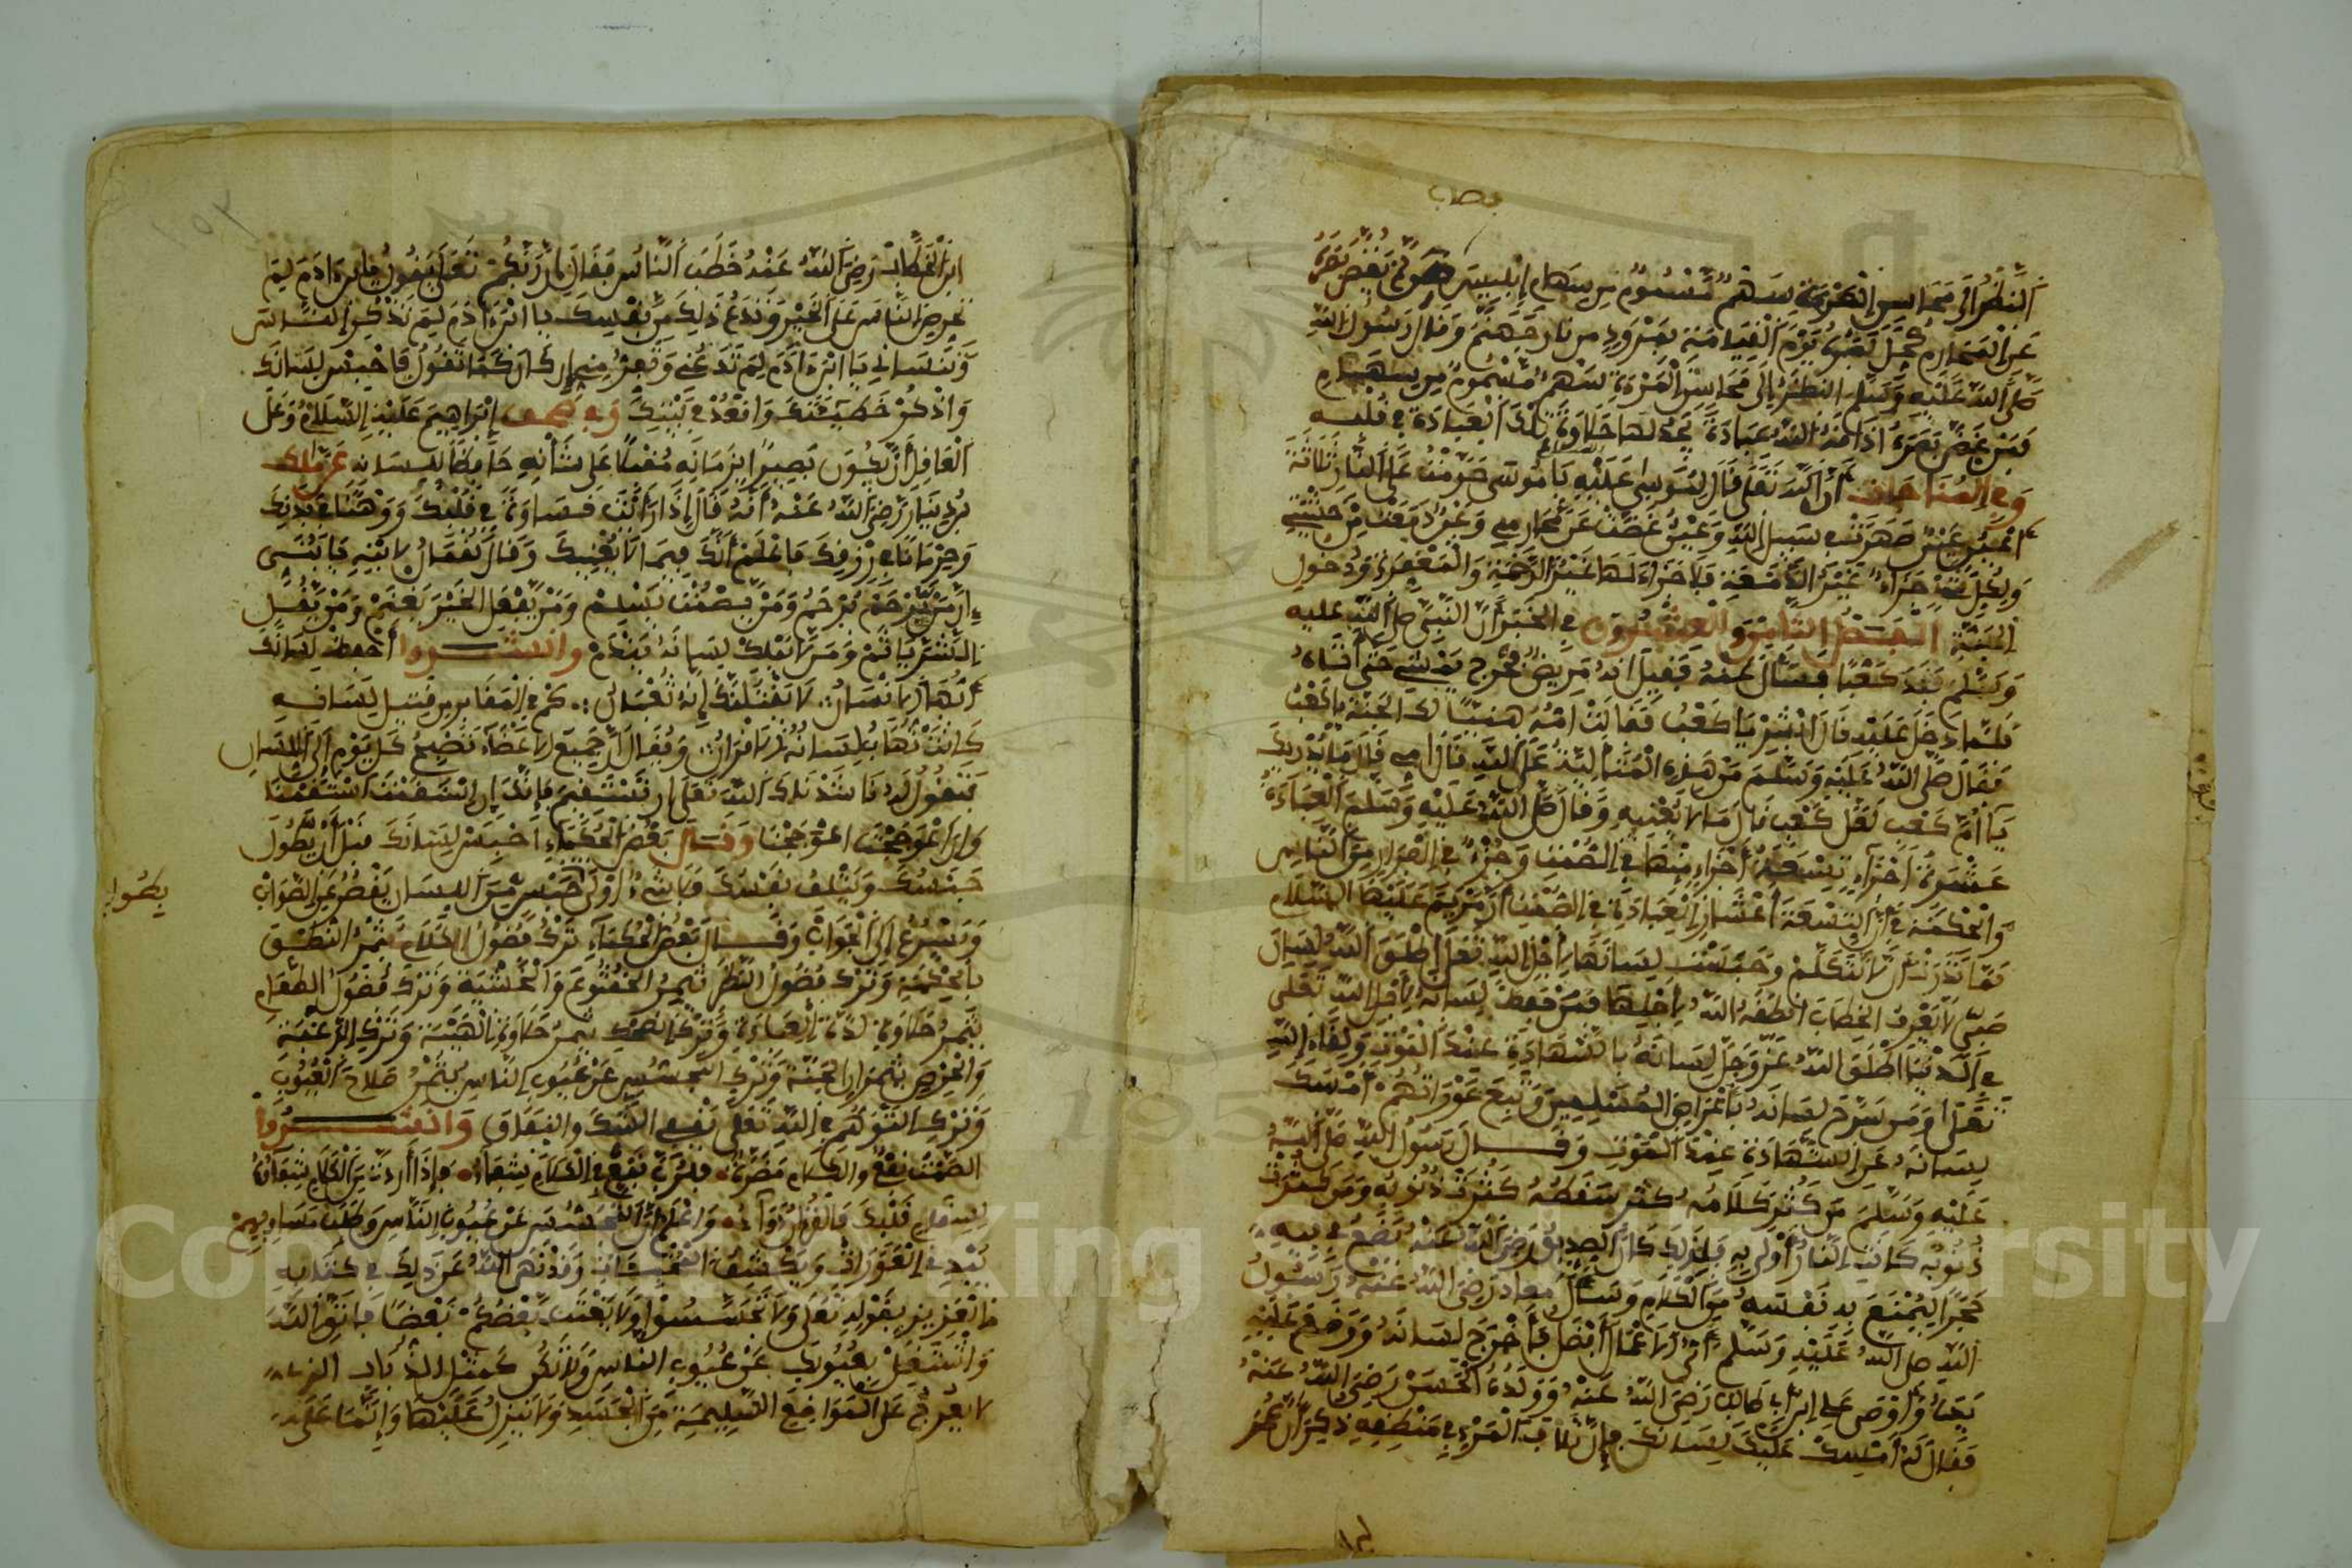 النظر إلى محاسن المرءة سهم مسموم من سهام إبليس فمن يغض بصره
عن المحارم كحل بصره يوم القيامة بمرود من نار جهنم وقال رسول الله
صلى الله عليه وسلم النظر إلى محاسن المرءة سهم مسموم من سهام
فمن غض بصره اذاقه الله عبادة يجد لها حلاوة تلك العبادة في قلبه
وفي المناجات أن الله تعلى قال لموسى عليه السلام يا موسى حرمت على النار ثلاثة
أعين عين سهرت في سبيل الله وعين غضت عن محارمي وعين دمعت من خشيتي
ولكل شيء جزاء غير الدمعة فلا جزاء لها غير الرحمة والمغفرة ودخول
الجنة الفصل الثامن والعشرون في الخبر أن النبي صلى الله عليه
وسلم فقد كعبا فسأل عنه فقيل انه مريض فخرج يمشي حتى أتاه
فلما دخل عليه قال ابشر يا كعب فقالت امه هنيئا لك الجنة يا كعب
فقال صلى الله عليه وسلم من هذه المتألية على الله قال أمي قال ما يدريك
يا أم كعب لعل كعب قال ما لا يعنيه وقال صلى الله عليه وسلم العبادة
عشرة أجزاء تسعة أجزاء منها في الصمت وجزء في الفرار من الناس
والحكمة في أن التسعة أعشار العبادة في الصمت أن مريم عليها السلام
لما نذرت أن لا تتكلم وحبست لسانها لأجل الله تعلى أطلق الله لسان
صبي لا يعرف الخطاب أنطقه الله لأجلها فمن حفظ لسانه لأجل الله تعلى
في الدنيا أطلق الله عز وجل لسانه بالشهادة عند الموت ولقاء الله
تعلى ومن سرح لسانه بأعراض المسلمين وتبع عوراتهم أمسك
لسانه عن الشهادة عند الموت وقال رسول الله صلى الله
عليه وسلم من كثر كلامه كثر سقطه كثرت ذنوبه ومن كثرت
ذنوبه كانت النار أولى به فلذلك كان الصديق رضي الله عنه يضع في فيه
حجرا ليمنع به نفسه من الكلام وسأل معاذ رضي الله عنه رسول
الله صلى الله عليه وسلم أي الاعمال أفضل فأخرج لسانه ووضع عليه
يده وأوصى علي ابن أبي طالب رضي الله عنه وولده الحسن رضي الله عنه
فقال له أمسك عليك لسانك فإن تلاف المرء في منطقه ذكر أن عمر
ابن الخطاب رضي الله عنه خطب الناس فقال إن ربكم تعلى يقول يا ابن ءادم لم
تحرض الناس على الخير وتدع ذلك من نفسك يا ابن ءادم لم تذكر الناس
وتنساني يا ابن ءادم لم تدعني وتفر مني إن كان كما تقول فاحبس لسانك
واذكر خطيئتك واقعد في بيتك وفي صحف إبراهيم عليه السلام وعلى
العاقل أن يكون بصيرا بزمانه مقبلا على شأنه حافظا للسانه عن مالك
بن دينار رضي الله عنه أنه قال إذا رأيت قساوة في قلبك ووهنا في بدنك
وحرمانا في رزقك فاعلم أنك فيما لا يعنيك وقال لقمان لابنه يا بني
إن من يرحم يرحم ومن يصمت يسلم ومن يفعل الخير يغنم ومن يفعل
الشر يأثم ومن لا يملك لسانه يندم وانشدوا أحفظ لسانك
أيها الانسان لا يقتلنك إنه ثعبان كم في المقابر من قتيل لسانه
كانت تهاب لسانه الاقران ويقال ان جميع الاعضاء تصبح كل يوم إلى اللسان
فتقول له ناشدناك الله تعلى ان تستقيم فإنك إن استقمت استقمنا
وإن اعوججت اعوججنا وقال بعض الحكماء احبس لسانك قبل أن يطول
حبسك ويتلف نفسك فلا شيء أولى بحبس من اللسان يقصر عن الصواب
يطول
ويسرع إلى الجواب وقال بعض الحكماء ترك فضول الكلام يثمر النطق
بالحكمة وترك فضول النظر يثمر الخشوع والخشية وترك فضول الطعام
يثمر حلاوة لذة العبادة وترك الضحك يثمر حلاوة الهيبة وترك الرغبة
والحرص يثمران المحبة وترك التجسس عن عيوب الناس يثمر صلاح العيوب
وترك التوهم في الله تعلى ينفي الشك والنفاق وانشدوا
الصمت نفع والكلام مضرة فلرب نفع في الكلام شفاء فإذا أردت من الكلام شفاء
لسقام قلبك فالقران دواء واعلم أن التجسس عن عيوب الناس وطلب مساويهم
يبدي العورات ويكشف المخبيات وقد نهى الله عن ذلك في كتابه
العزيز بقوله تعلى ولا تجسسوا ولا يغتب بعضكم بعضا فاتق الله
واشتغل بعيوبك عن عيوب الناس ولا تكن كمثل الذباب
لا يعرج على المواضع السليمة من الجسد ولا ينزل عليها وإنما على